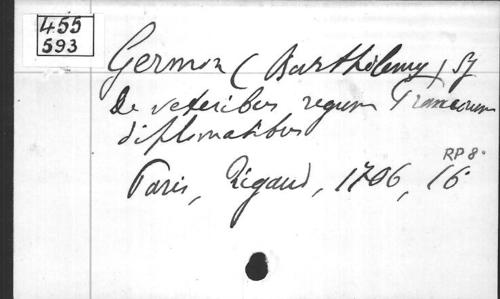 455
593
Germon (Barthélemy) SJ
De veteribus regum Francorum
diplomatibus
RP 8°
Paris, Rigaud, 1706, 16°